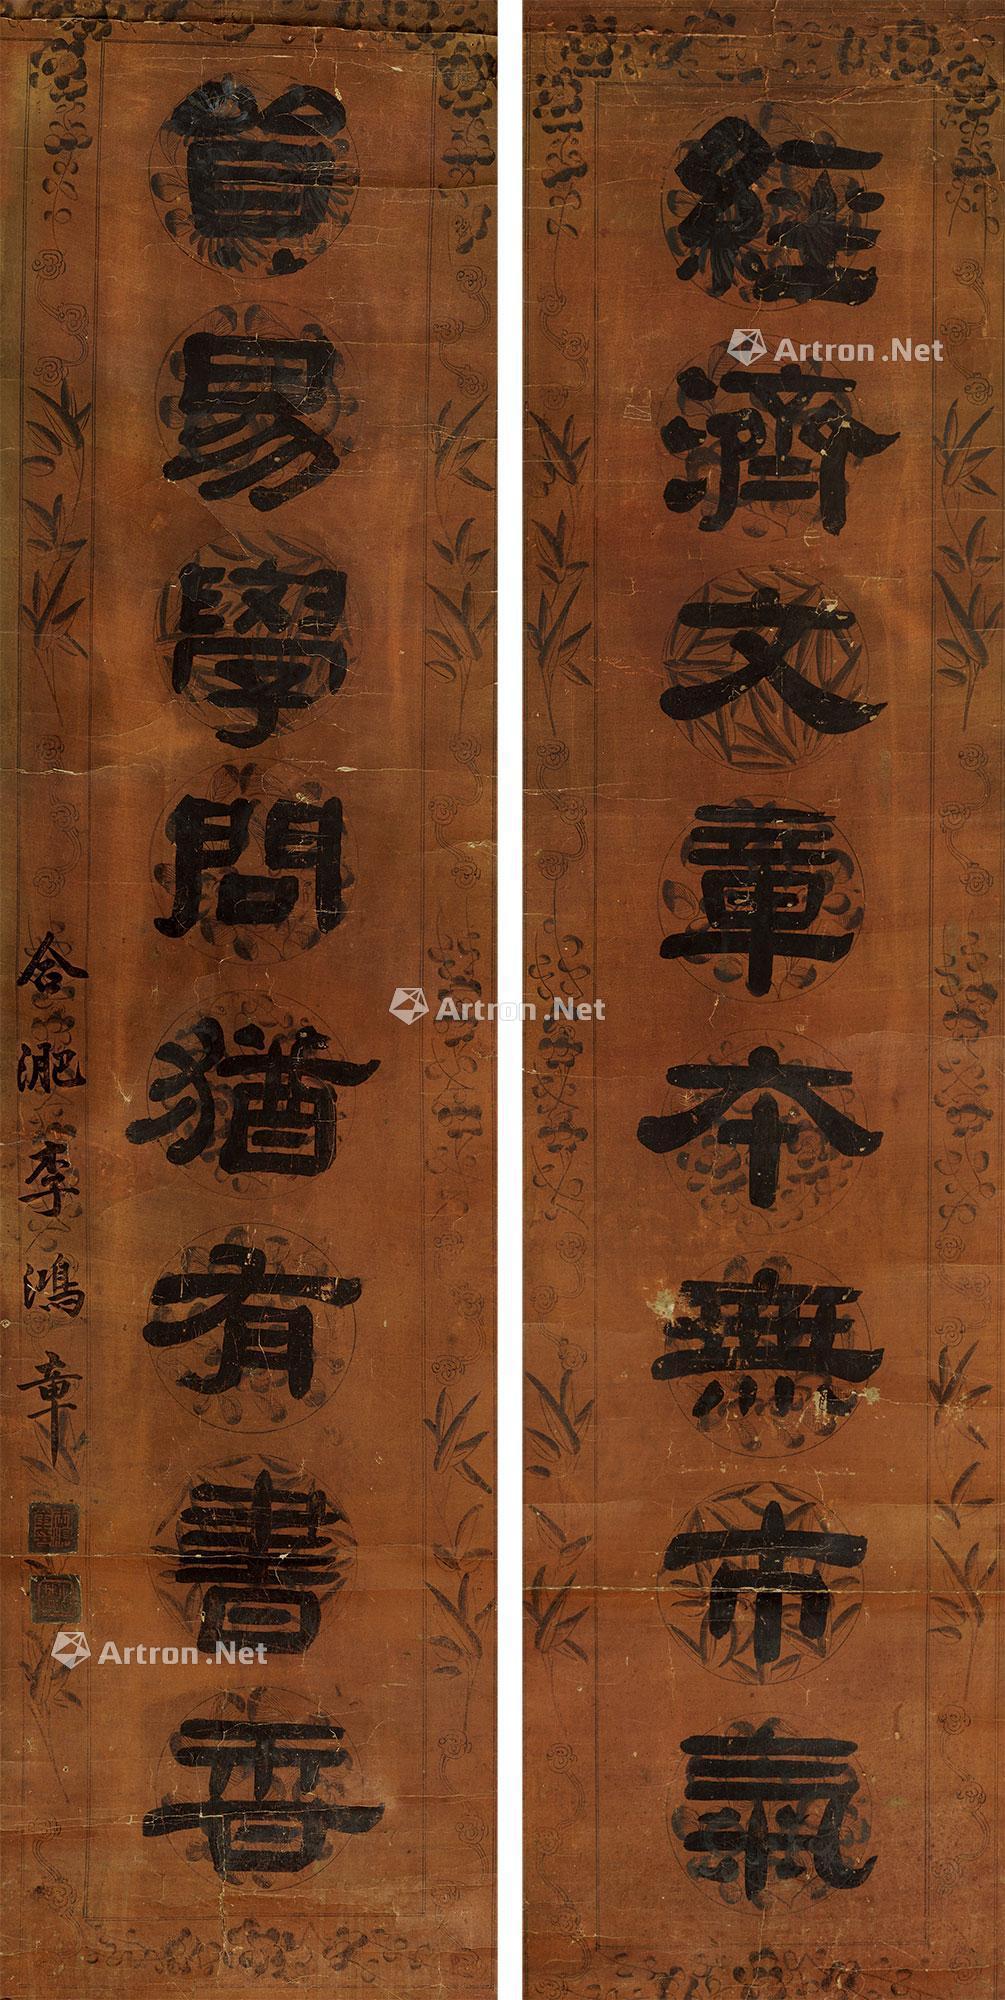 經濟文章本無市氣
貿易學問猶有書香
合淝李鴻章
Artron.Net
Artron.Net
Artron.Net